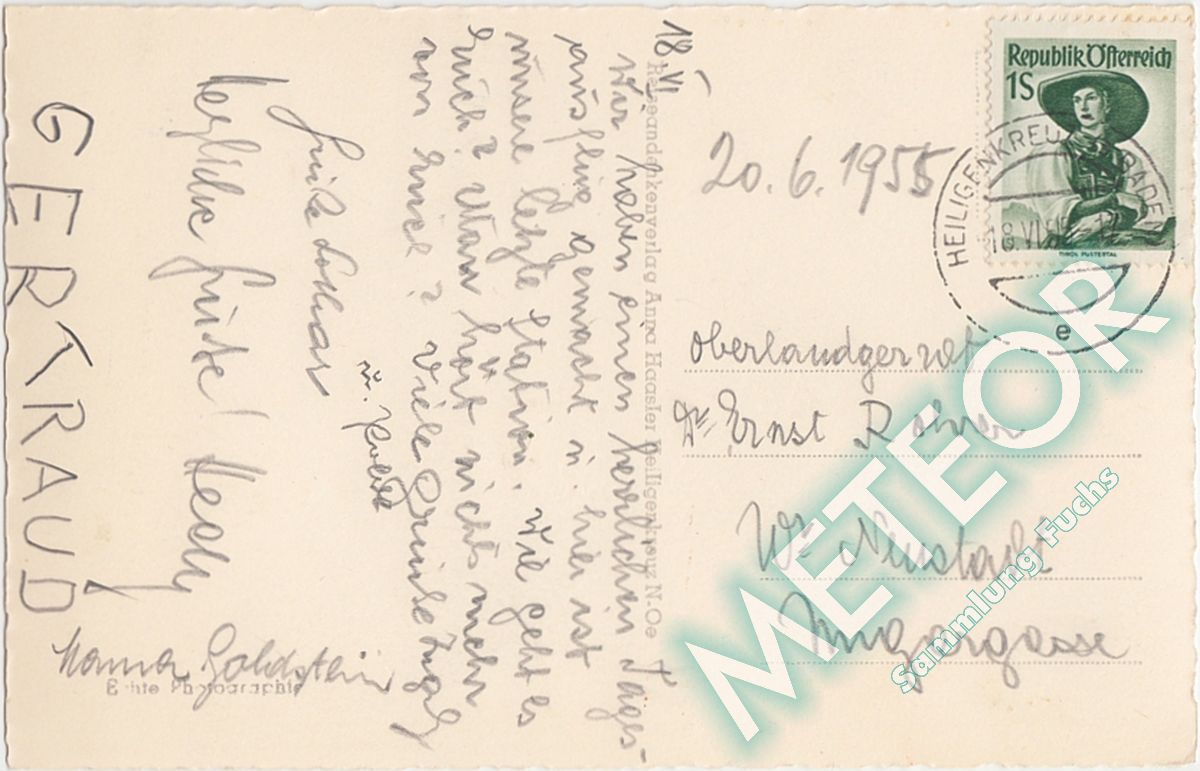 18. VI.
Wir haben einen herrlichen Tages-
ausflug gemacht u. hier ist
unsere letzte Station. Wie geht es
Euch? Man hört nichts mehr
von Euch? Viele Grüße
u.
herzliche Grüße!
GERTRAUD
Hanna Goldstein
Echte Photographie
Reiseandenkenverlag Anna Haasler Heiligenkreuz N-Oe
Republik Österreich
1S
TIROL PUSTERTAL
HEILIGENKREUZ BADEN
18. VI. 55
e
20.6.1955
Oberlandgerrat
Dr. Ernst Rohrer
Wr Neustadt
Ungargasse
METEOR
Sammlung Fuchs